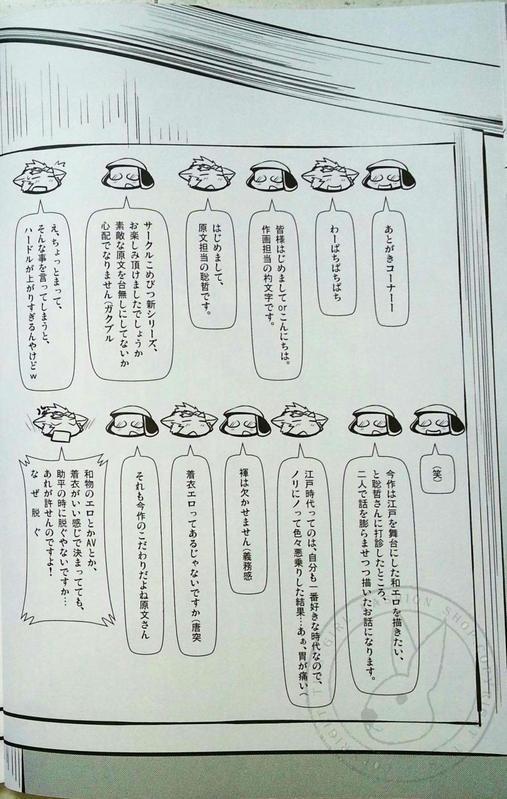 あとがきコーナーー
わーぱちぱちぱち
皆様はじめましてorこんにちは。
作画担当の杓文字です。
はじめまして、
原文担当の聡哲です。
サークルこめびつ新シリーズ、
お楽しみ頂けましたでしょうか
素敵な原文を台無しにしてないか
心配でなりません(ガクブル
え、ちょっとまって、
そんな事を言ってしまうと、
ハードルが上がりすぎるんやけどw
(笑)
今作は江戸を舞台にした和エロを描きたい、
と聡哲さんに打診したところ、
二人で話を膨らませつつ描いたお話になります。
江戸時代ってのは、自分も一番好きな時代なので、
ノリにノって色々悪乗りした結果…あぁ、胃が痛い(
褌は欠かせません(義務感
着衣エロってあるじゃないですか(唐突
それも今作のこだわりだよね原文さん
和物のエロとかAVとか、
着衣がいい感じで決まってても、
助平の時に脱ぐやないですか…
あれが許せんのですよ!
なぜ脱ぐ